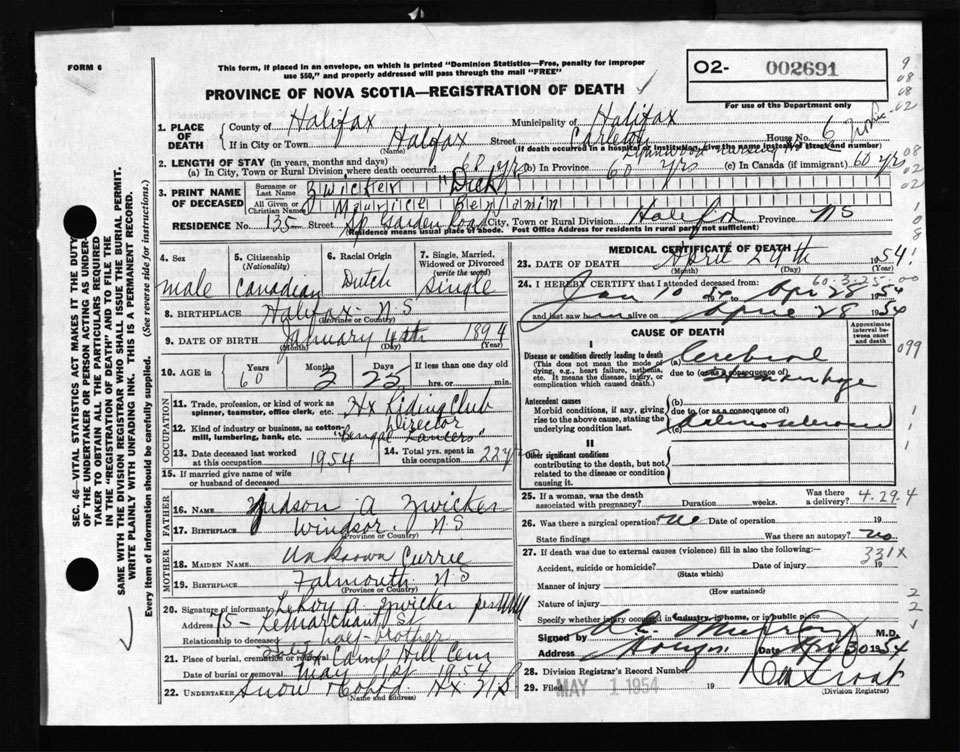 FORM 6
This form, if placed in an envelope, on which is printed "Dominion Statistics—Free, penalty for improper
use $50," and properly addressed will pass through the mail "FREE"
PROVINCE OF NOVA SCOTIA—REGISTRATION OF DEATH
O2- 002691
For use of the Department only
1. PLACE OF DEATH
County of Halifax Municipality of Halifax
If in City or Town Halifax (Name) Street Carleton House No. 6
(If death occurred in a hospital or institution, give the name instead of street and number)
2. LENGTH OF STAY (in years, months and days)
(a) In City, Town or Rural Division where death occurred 60 yrs (b) In Province 60 yrs (c) In Canada (if immigrant) 60 yrs
3. PRINT NAME OF DECEASED
Surname or Last Name Zwicker "Dick"
All Given or Christian Names Maurice Benjamin
RESIDENCE No. 135- Street Sp Garden Road City, Town or Rural Division Halifax Province NS
(Residence means usual place of abode. Post Office Address for residents in rural parts not sufficient)
SEC. 46—VITAL STATISTICS ACT MAKES IT THE DUTY
OF THE UNDERTAKER OR PERSON ACTING AS UNDER-
TAKER TO OBTAIN ALL THE PARTICULARS REQUIRED
IN THE "REGISTRATION OF DEATH" AND TO FILE THE
SAME WITH THE DIVISION REGISTRAR WHO SHALL ISSUE THE BURIAL PERMIT.
WRITE PLAINLY WITH UNFADING INK. THIS IS A PERMANENT RECORD.
Every item of information should be carefully supplied. (See reverse side for instructions.)
4. Sex
male
5. Citizenship (Nationality)
Canadian
6. Racial Origin
Dutch
7. Single, Married, Widowed or Divorced (write the word)
Single
8. BIRTHPLACE Halifax N.S
(Province or Country)
9. DATE OF BIRTH January 4th 1894
(Month) (Day) (Year)
10. AGE in Years 60 Months 3 Days 25 If less than one day
hrs. or min.
OCCUPATION
11. Trade, profession, or kind of work as spinner, teamster, office clerk, etc. Hx Riding Club
Director
12. Kind of industry or business, as cotton-mill, lumbering, bank, etc. "Bengal Lancers"
13. Date deceased last worked at this occupation 1954
14. Total yrs. spent in this occupation 22 y
15. If married give name of wife or husband of deceased
FATHER
16. Name Judson A Zwicker
17. Birthplace Windsor. N.S
MOTHER
18. MAIDEN NAME Unknown Currie
19. BIRTHPLACE Falmouth N.S
(Province or Country)
20. Signature of informant LeRoy A Zwicker per
Address 75- LeMarchant St
Relationship to deceased brother
21. Place of burial, cremation or removal Halifax Camp Hill Cem
Date of burial or removal May 1st 1954
22. UNDERTAKER Snow & Co Ltd. Hx N.S
(Name and address)
MEDICAL CERTIFICATE OF DEATH
23. DATE OF DEATH April 29th 1954
(Month) (Day) (Year)
60-3-25-00
24. I HEREBY CERTIFY that I attended deceased from:
Jan 10 to Apr 28 1954
and last saw him alive on April 28 1954
CAUSE OF DEATH
Approximate interval between onset and death
I
Disease or condition directly leading to death
(This does not mean the mode of dying, e.g., heart failure, asthenia, etc. It means the disease, injury, or complication which caused death.)
(a) Cerebral
due to (or as a consequence of)
Hemorrhage
Antecedent causes
Morbid conditions, if any, giving rise to the above cause, stating the underlying condition last.
(b)
due to (or as a consequence of)
(c) Arteriosclerosis
II
Other significant conditions
contributing to the death, but not related to the disease or condition causing it.
25. If a woman, was the death associated with pregnancy? Duration weeks. Was there a delivery? 4.29.4
26. Was there a surgical operation? No Date of operation 19
State findings Was there an autopsy? No
27. If death was due to external causes (violence) fill in also the following:— 331X
Accident, suicide or homicide? Date of injury 19
(State which)
Manner of injury
(How sustained)
Nature of injury
Specify whether injury occurred in industry, in home, or in public place
Signed by M.D.
Address Date Apr 30 1954
28. Division Registrar's Record Number
29. Filed MAY 1 1954 19
(Division Registrar)